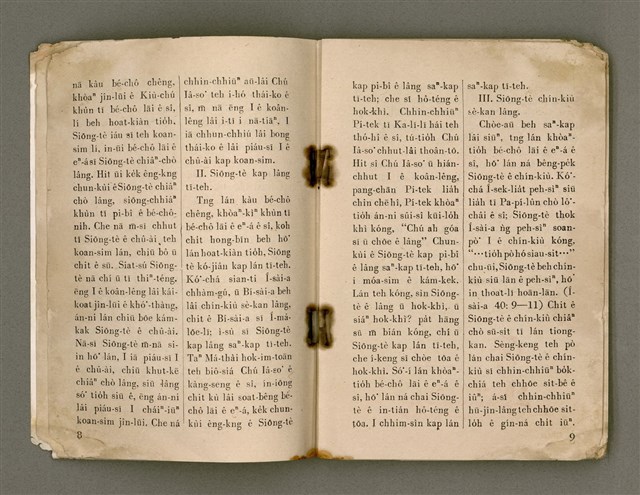 nā kàu bé-chô chêng,
khòaⁿ jîn-lūi ê Kiù-chú
khùn tī bé-chô lāi ê sî,
lí beh hoat-kiàn tio̍h,
Siōng-tè iáu sī teh koan-
sim lí, in-ūi bé-chô lāi ê
eⁿ-á sī Siōng-tè chiâⁿ-chò
lâng. Hit ūi ke̍k êng-kng
chun-kùi ê Siōng-tè chiâⁿ
chò lâng, siōng-chhiáⁿ
khùn tī pi-bî ê bé-chô-
nih. Che nā m̄-sī chhut
tī Siōng-tè ê chû-ài teh
koan-sim lán, chiū bô ū
chit ê sū. Si̍at-sú Siōng-
tè nā chí ū tī thiⁿ-téng,
ēng I ê koân-lêng lâi kái-
koat jîn-lūi ê khó͘-thàng,
án-ni lán chiū bōe kám-
kak Siōng-tè ê chû-ài.
Nā-sī Siōng-tè m̄ nā sī-
in hō͘ lán, I iā piáu-sī I
ê chû-ài, chiū khut-kē
chiâⁿ chò lâng, siū lâng
só͘ tio̍h siū ê, ēng án-ni
lâi piáu-sī I chiâⁿ-iūⁿ
koan-sim jîn-lūi. Che ná
8
chhin-chhiūⁿ āu-lâi Chú
Iâ-so͘ teh i-hó thài-ko ê
sî, m̄ nā ēng I ê koân-
lêng lâi i-tī i nā-tiāⁿ, I
iā chhun-chhiú lâi bong
thài-ko ê lâi piáu-sī I ê
chû-ài kap koan-sim.
II. Siōng-tè kap lâng
tī-teh.
Tng lán kàu bé-chô
chêng, khòaⁿ-kìⁿ khùn tī
bé-chô lāi ê eⁿ-á ê sî, koh
chit hong-bīn beh hō͘
lán hoat-kiàn tio̍h, Siōng
tè kó-jiân kap lán tī-teh.
Kó͘-chá sian-ti Í-sài-a
chhàm-gú, ū Bî-sài-a beh
lâi chin-kiù sè-kan lâng,
chit ê Bî-sài-a sī Í-má-
lōe-lī; i-sù sī Siōng-tè
kap lán tī-teh.
Taⁿ Má-thài hok-im-toān
teh biô-siá Chú Iâ-so͘ ê
kàng-seng ê sî, in-iōng
chit kù lâi soat-bêng bé-
chô lāi ê eⁿ-á, ke̍k chun-
kùi êng-kng ê Siōng-tè
kap pi-bî ê lâng saⁿ-kap
tī-teh; che sī hō-téng ê
hok-khì. Chhin-chhiūⁿ
Pí-tek tī Ka-lī-lī hái teh
thó-hî ê sî, tú-tio̍h Chú
Iâ-so͘ chhut-lâi thoân-tō.
Hit sî Chú Iâ-so͘ ū hián-
chhut I ê koân-lêng,
pang-chān Pí-tek lia̍h
chin chē hî, Pí-tek khòaⁿ
tio̍h án-ni sûi-sî kūi-lo̍h
khì kóng, “Chú ah góa
sī ū chōe ê lâng” Chun-
kùi ê Siōng-tè kap pi-bî
ê lâng saⁿ-kap tī-teh, hō͘
i móa-sim ê kám-kek.
Lán teh kóng, sìn Siōng-
tè ê lâng ū hok-khì, ū
siáⁿ hok-khì? pa̍t hāng
sū m̄ bián kóng, chí ū
Siōng-tè kap lán tī-teh,
che í-keng sī chòe tōa ê
hok-khì. Só͘-í lán khòaⁿ-
tio̍h bé-chô lāi ê eⁿ-á ê
sî, hō͘ lán ná chai Siōng-
tè ê in-tián hō-téng ê
tōa. I chhim-sîn kap lán
saⁿ-kap tī-teh.
III. Siōng-tè chín-kiù
sè-kan lâng.
Chòe-āu beh saⁿ-kap
lâi siūⁿ, tng lán khòaⁿ-
tio̍h bé-chô lāi ê eⁿ-á ê
sî, hō͘ lán ná bêng-pe̍k
Siōng-tè ê chín-kiù. Kó͘-
chá Í-sek-lia̍t peh-sìⁿ siū
lia̍h tī Pa-pí-lûn chò lô͘-
châi ê sî; Siōng-tè thok
Í-sài-a ǹg peh-sìⁿ soan-
pò͘ I ê chín-kiù kóng,
“⋯tio̍h pò hó siau-sit⋯”
chu-ūi, Siōng-tè beh chín-
kiù siū lān ê peh-sìⁿ, hō͘
in thoat-lī hoān-lān. (Í-
sài-a 40: 9—11) Chit ê
Siōng-tè ê chín-kiù chiâⁿ
chò sū-si̍t tī lán tiong-
kan. Sèng-keng teh pò
lán chai Siōng-tè ê chín-
kiù sī chhin-chhiūⁿ bo̍k-
chiá teh chhōe sit-bê ê
iûⁿ; á-sī chhin-chhiūⁿ
hū-jîn-lâng teh chhōe sit-
lo̍h ê gîn-nā chit iūⁿ.
9